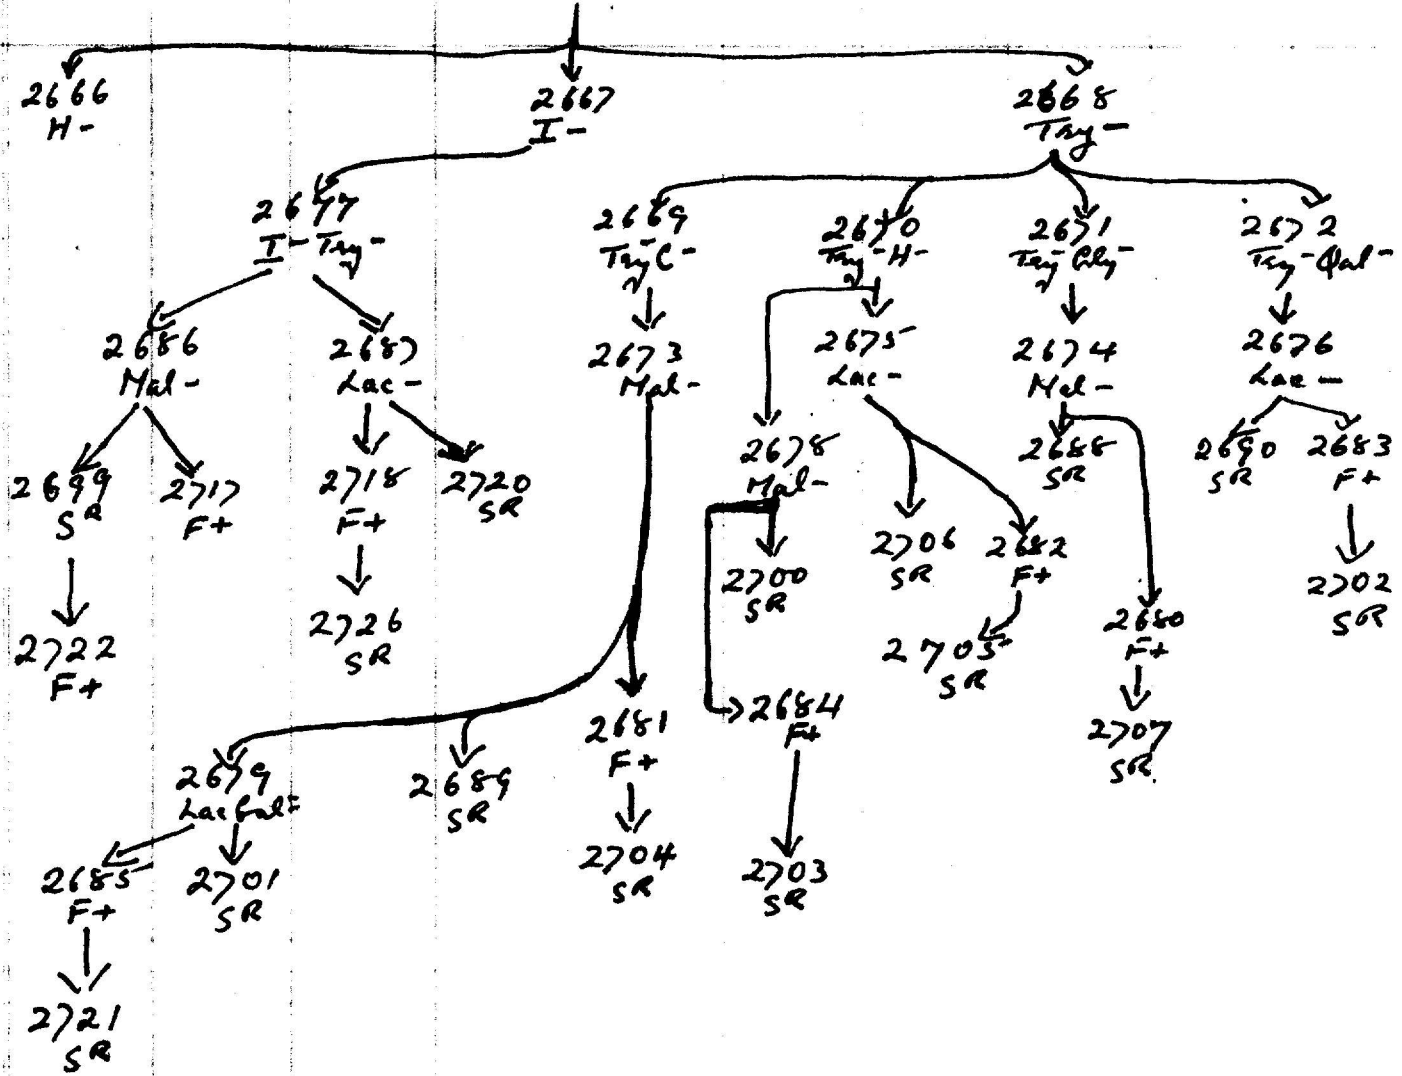 2666
H-
2667
I-
2668
Try-
2677
I- Try-
2669
Try- C-
2670
Try- H-
2671
Try- Gly-
2672
Try- Gal-
2686
Mal-
2687
Lac-
2673
Mal-
2675
Lac-
2674
Mal-
2676
Lac-
2699
SR
2717
F+
2718
F+
2720
SR
2678
Mal-
2688
SR
2690
SR
2683
F+
2700
SR
2706
SR
2682
F+
2702
SR
2722
F+
2726
SR
2705
SR
2680
F+
2681
F+
2684
F+
2707
SR
2679
Lac Gal=
2689
SR
2704
SR
2703
SR
2685
F+
2701
SR
2721
SR